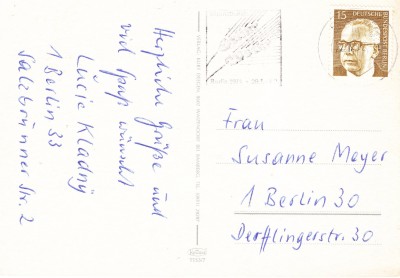 Herzliche Grüße und
viel Spaß wünscht
Lucie Kladny
1 Berlin 33
Salzbrunner Str. 2
15
DEUTSCHE
BUNDESPOST
BERLIN
Frau
Susanne Meyer
1 Berlin 30
Derfflingerstr. 30